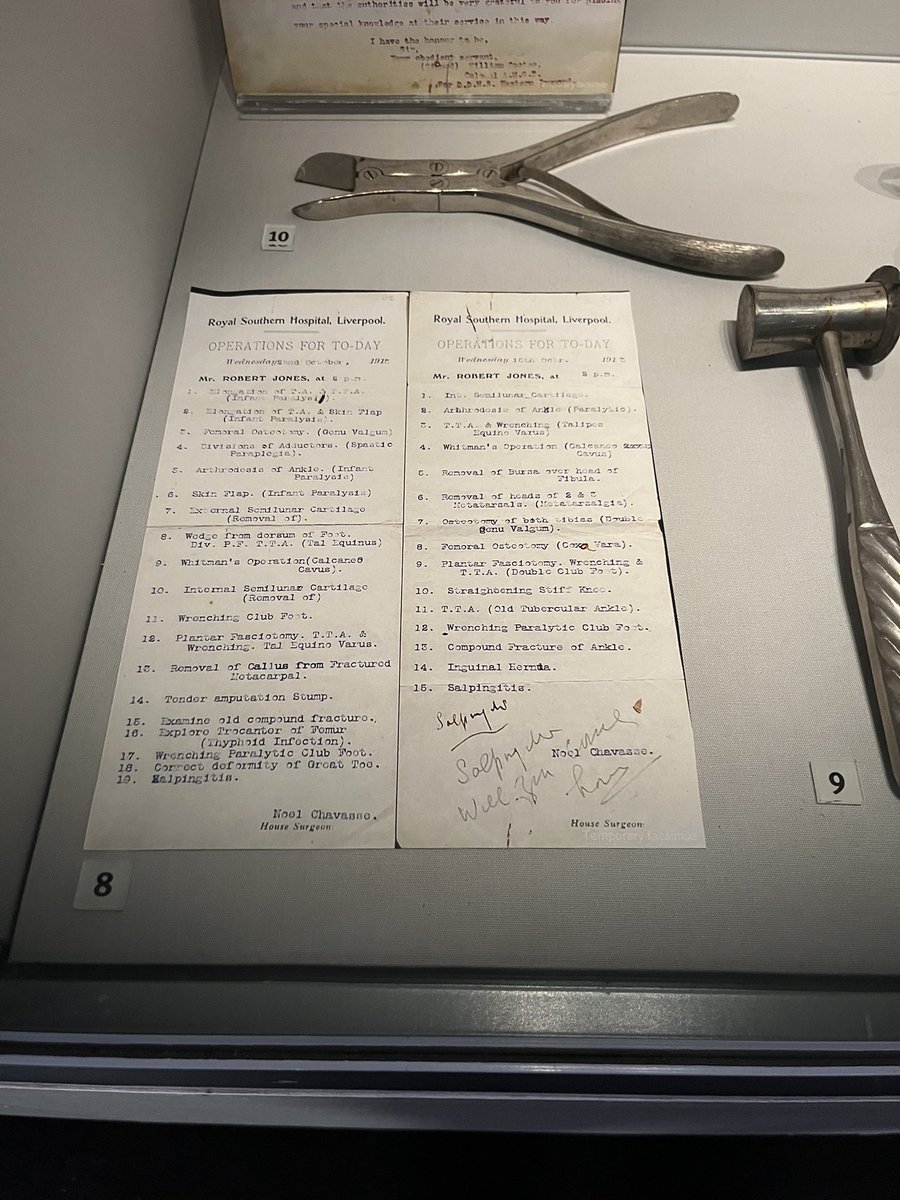 and that the authorities will be very grateful to you for placing
your special knowledge at their service in this way.
I have the honour to be,
Sir,
Your obedient servant,
(Signed) William Coates,
Colonel A.M.S.
For D.D.M.S. Western Command.
10
Royal Southern Hospital, Liverpool.
OPERATIONS FOR TO-DAY
Wednesday 22nd October, 191
Mr. ROBERT JONES, at 2 p.m.
1. Elongation of T.A. & T.T.A.
(Infant Paralysis).
2. Elongation of T.A. & Skin Flap
(Infant Paralysis).
3. Femoral Osteotomy. (Genu Valgum)
4. Divisions of Adductors. (Spastic
Paraplegia).
5. Arthrodesis of Ankle. (Infant
Paralysis)
6. Skin Flap. (Infant Paralysis)
7. External Semilunar Cartilage
(Removal of).
8. Wedge from dorsum of Foot.
Div. P.F. T.T.A. (Tal Equinus)
9. Whitman's Operation(Calcaneo
Cavus).
10. Internal Semilunar Cartilage
(Removal of)
11. Wrenching Club Foot.
12. Plantar Fasciotomy. T.T.A. &
Wrenching. Tal Equino Varus.
13. Removal of Callus from Fractured
Metacarpal.
14. Tender amputation Stump.
15. Examine old compound fracture.
16. Explore Trocanter of Femur
(Thyphoid Infection).
17. Wrenching Paralytic Club Foot.
18. Correct deformity of Great Toe.
19. Salpingitis.
Noel Chavasse.
House Surgeon
Royal Southern Hospital, Liverpool.
OPERATIONS FOR TO-DAY
Wednesday 15th Octr. 191
Mr. ROBERT JONES, at 2 p.m.
1. Int. Semilunar Cartilage.
2. Arhrodesis of Ankle (Paralytic).
3. T.T.A. & Wrenching (Talipes
Equino Varus)
4. Whitman's Operation (Calcaneo
Cavus)
5. Removal of Bursa over head of
Fibula.
6. Removal of heads of 2 & 3
Metatarsals. (Metatarsalgia).
7. Osteotomy of both tibias (Double
genu Valgum).
8. Femoral Osteotomy (Coxa Vara).
9. Plantar Fasciotomy. Wrenching &
T.T.A. (Double Club Foot).
10. Straightening Stiff Knee.
11. T.T.A. (Old Tubercular Ankle).
12. Wrenching Paralytic Club Foot.
13. Compound Fracture of Ankle.
14. Inguinal Hernia.
15. Salpingitis.
Noel Chavasse.
House Surgeon
Temporary facsimile
8
9